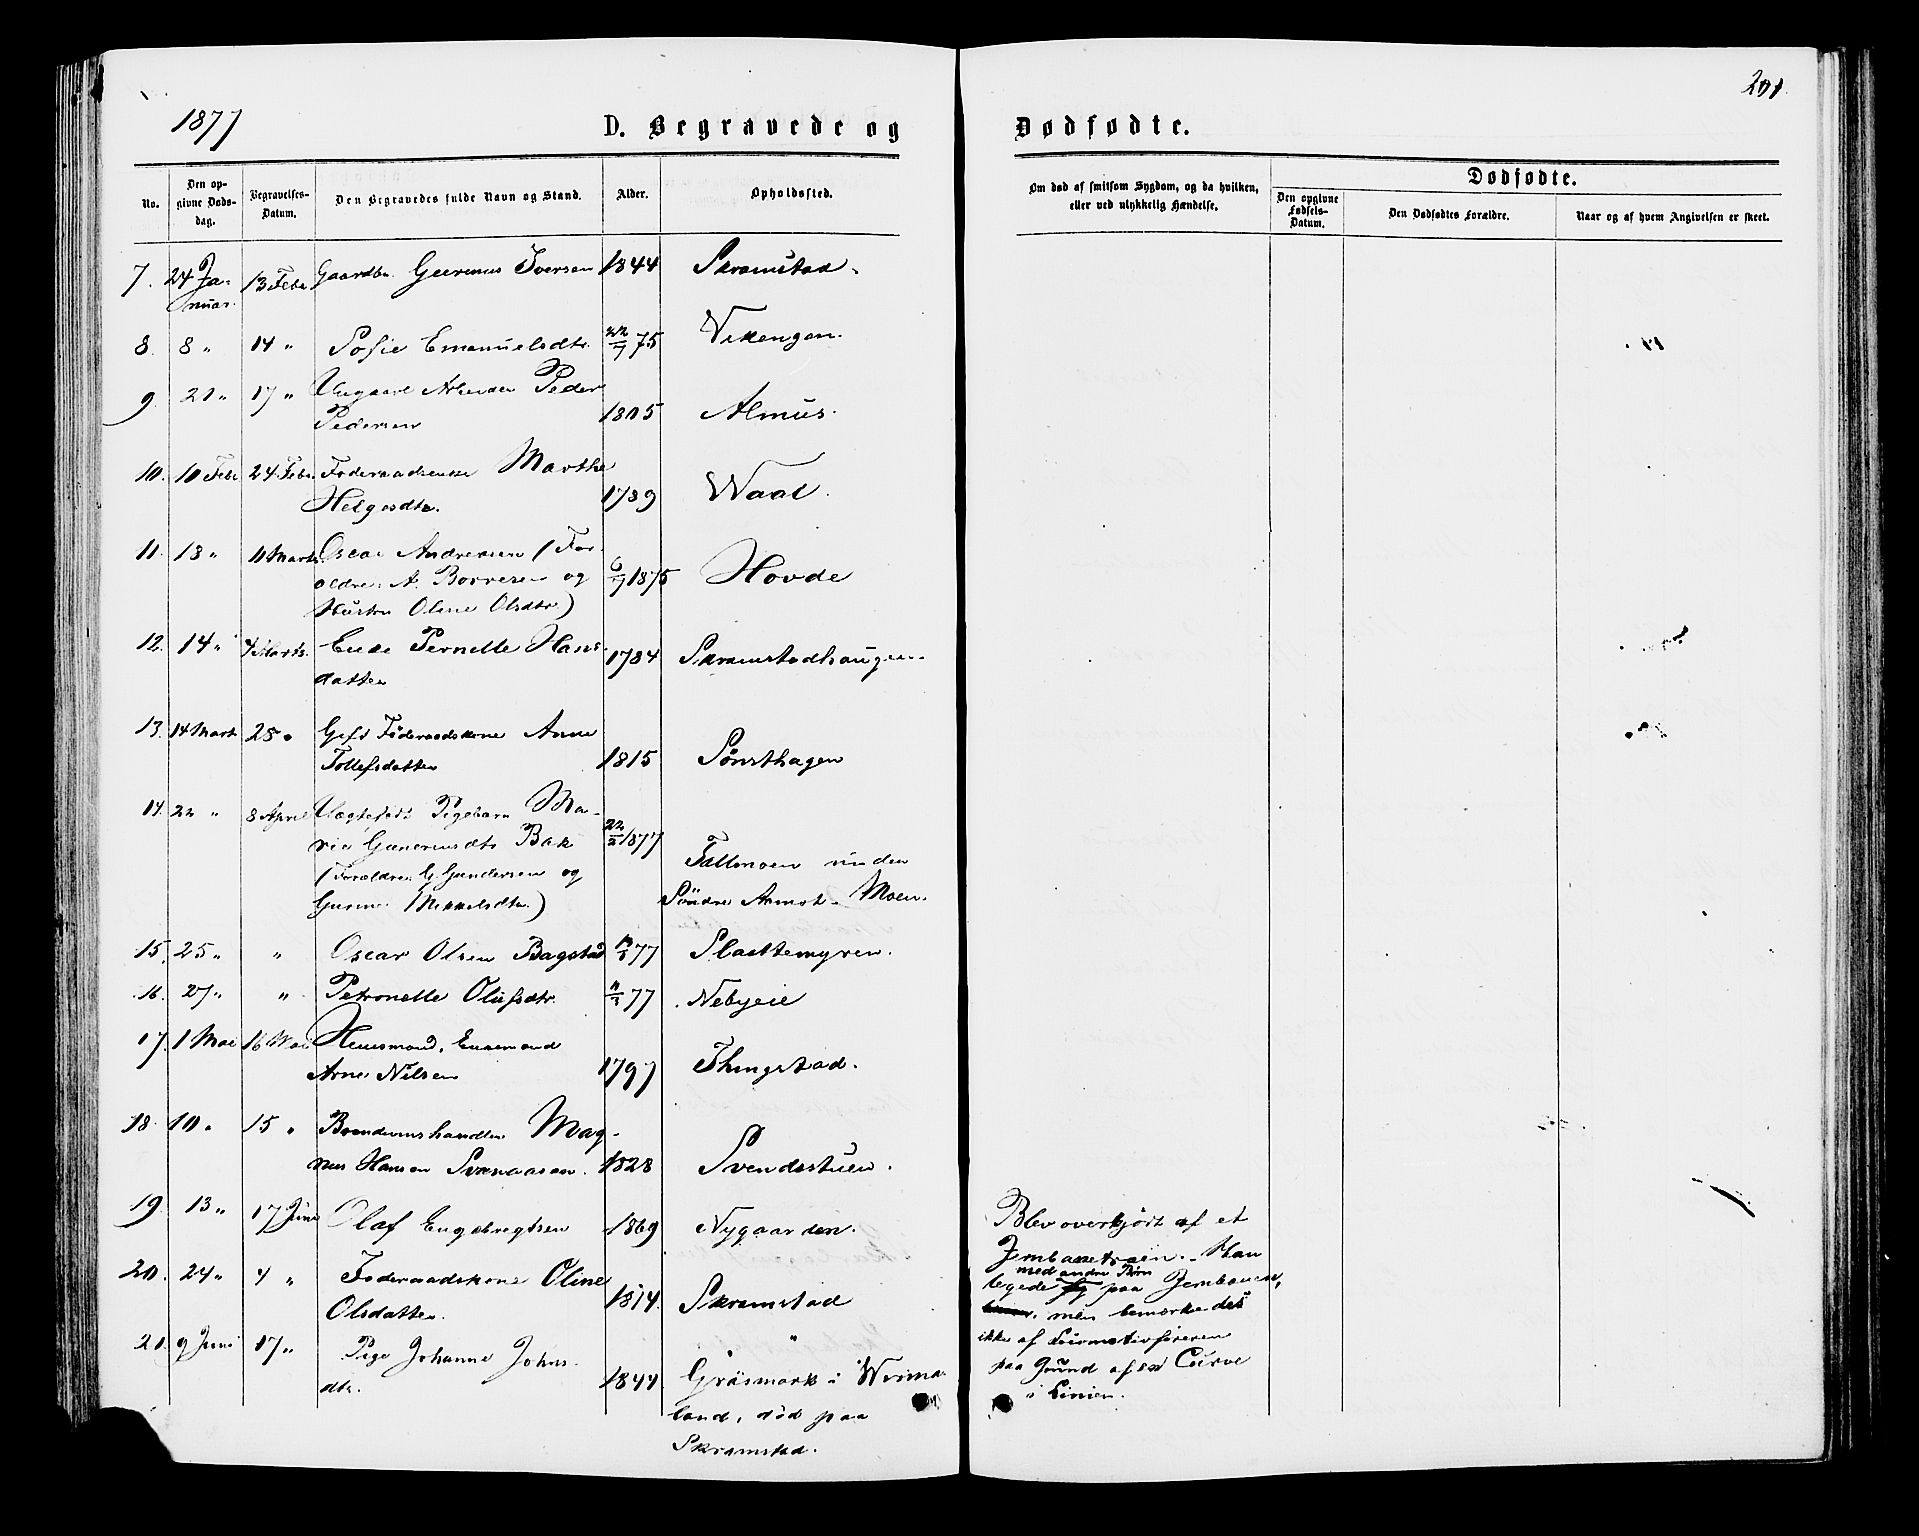 201.
1877
D. Begravede og Dødfødte.
No.
Den opgivne Dødsdag.
Begravelses-Datum.
Den Begravedes fulde Navn og Stand.
Alder.
Opholdssted.
Om død af smitsom Sygdom, og da hvilken, eller ved ulykkelig Hændelse.
Dødfødte.
Den opgivne Fødsels-Datum.
Den Dødfødtes Forældre.
Naar og af hvem Angivelsen er skeet.
7. 24 Ja- 13 Febr Gaardbr. Iversen 1844 Skramstad.
nuar.
8. 8 " 14 " Sofie Emanuelsdtr. 22/7 75 Vikengen.
9. 21 " 17 " Ungkarl Arbeider Peder
Pedersen 1805 Almus.
10. 10 Febr 24 Febr. Føderaadsenke Marthe
Helgesdtr. 1789 Waal.
11. 13 " 11 Marts Oscar Andreasen (For-
ældre: A. Borresen og 6/7 1875 Hovde
Hustru Oline Olsdtr.)
12. 14 " 4 Marts. Enke Pernelle Hans-
datter 1784 Skramstadhaugen.
13. 14 Marts 25 " Gift Føderaadskone Anne
Tollefsdatter 1815 Sønsthagen
14. 22 " 8 April Uægtefødt Pigebarn Ma-
rie Gunerusdtr. Bak 22/2 1877
(Forældre: G. Gundersen og Fallmoen under
Gurine Mikkelsdtr.) Söndre Aamot-Moen.
15. 25 " " Oscar Olsen Bagstad 77 Slaattemyren.
16. 27 " " Petronelle Olufsdtr. 11/3 77 Nebyeie
17. 1 Mai 16 Mai Huusmand, Enkemand
Arne Nilsen 1797 Thingstad.
18. 10 " 15 " Brændeviinshandler Mag-
nus Hansen 1828 Svendsstuen.
19. 13 " 17 Juni Olaf Engebregtsen 1869 Nygaarden.
20. 24 " 4 " Føderaadskone Oline
Olsdatter. 1814. Skramstad
21. 9 Juni 17 " Pige Johanne Johns-
dtr. 1844 Gräsmark i Werma-
land, död paa
Skramstad.
Blev overkjørt af et
Jernbanetræin. Han
med andre Børn
legede paa Jernbanen,
men bemærkedes
ikke af Locomotivføreren
paa Grund af en Curve
i Linien.